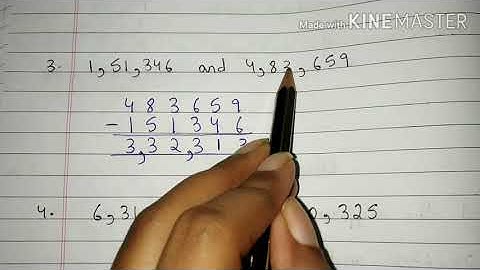 Made with KINEMASTER
3. 1,51,346 and 4,83,659
483659
- 151346
3,32,313
4. 6,31 , 325